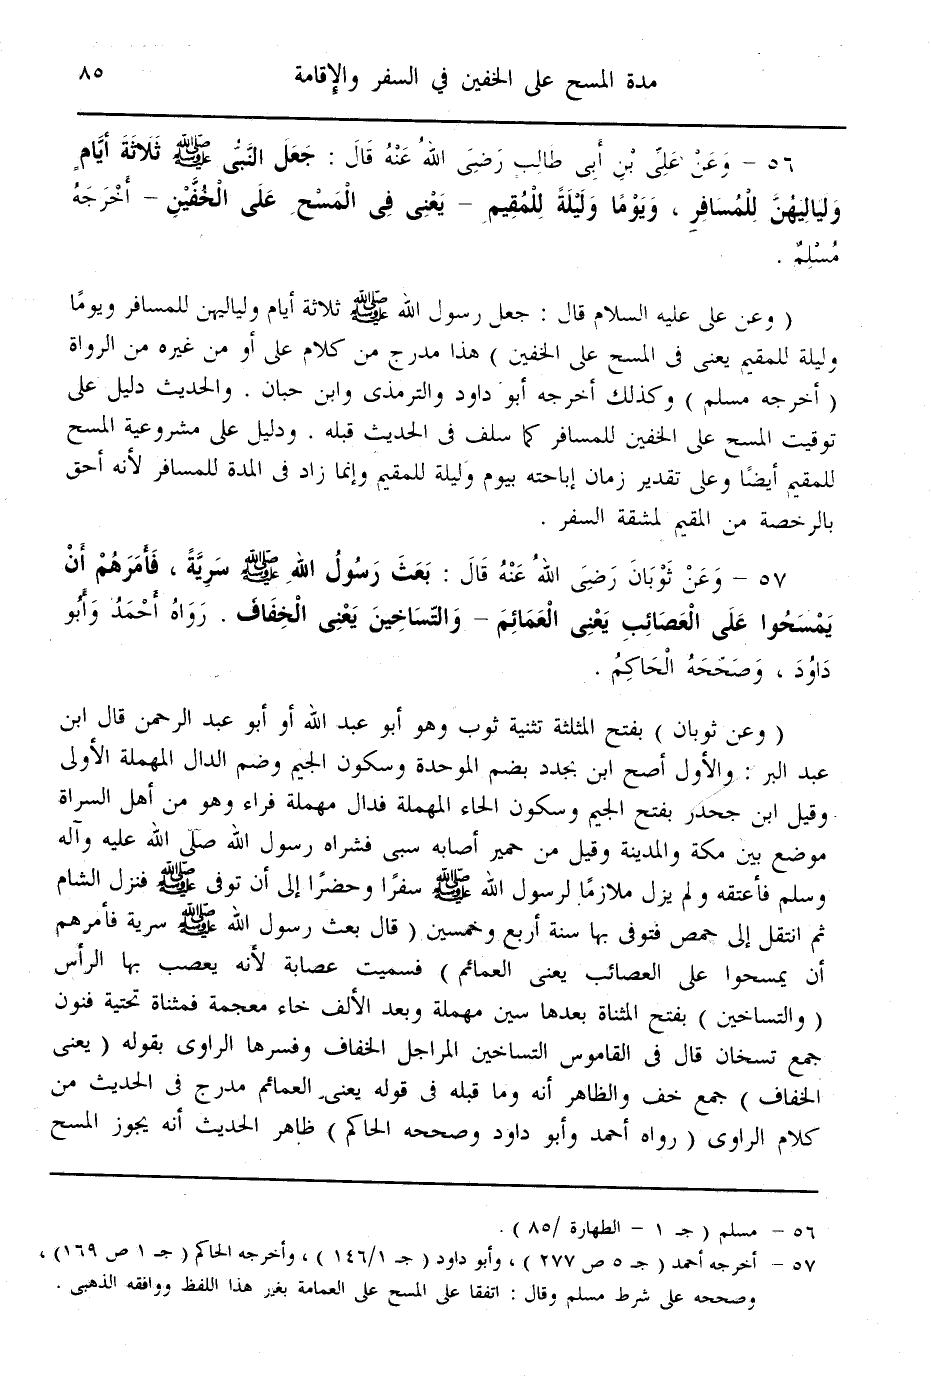 مدة المسح على الخفين في السفر والإقامة ٨٥
٥٦ - وَعَنْ عَلِيِّ بْنِ أَبِى طالِبٍ رَضِىَ اللهُ عَنْهُ قَالَ : جَعَلَ النَّبِىُّ ﷺ ثَلَاثَةَ أَيَّامٍ
وَلَيَالِيَهُنَّ لِلْمُسَافِرِ ، وَيَوْمًا وَلَيْلَةً لِلْمُقِيمِ - يَعْنِى فِى الْمَسْحِ عَلَى الْخُفَّيْنِ - أَخْرَجَهُ
مُسْلِمٌ .
( وعن على عليه السلام قال : جعل رسول الله ﷺ ثلاثة أيام ولياليهن للمسافر ويومًا
وليلة للمقيم يعنى فى المسح على الخفين ) هذا مدرج من كلام على أو من غيره من الرواة
( أخرجه مسلم ) وكذلك أخرجه أبو داود والترمذى وابن حبان . والحديث دليل على
توقيت المسح على الخفين للمسافر كما سلف فى الحديث قبله . ودليل على مشروعية المسح
للمقيم أيضًا وعلى تقدير زمان إباحته بيوم وليلة للمقيم وإنما زاد فى المدة للمسافر لأنه أحق
بالرخصة من المقيم لمشقة السفر .
٥٧ - وَعَنْ ثَوْبَانَ رَضِىَ اللهُ عَنْهُ قَالَ : بَعَثَ رَسُولُ اللهِ ﷺ سَرِيَّةً ، فَأَمَرَهُمْ أَنْ
يَمْسَحُوا عَلَى الْعَصَائِبِ يَعْنِى الْعَمَائِمَ - وَالتَّسَاخِينَ يَعْنِى الْخِفَافَ . رَوَاهُ أَحْمَدُ وَأَبُو
دَاوُدَ ، وَصَحَّحَهُ الْحَاكِمُ .
( وعن ثوبان ) بفتح المثلثة تثنية ثوب وهو أبو عبد الله أو أبو عبد الرحمن قال ابن
عبد البر : والأول أصح ابن بجدد بضم الموحدة وسكون الجيم وضم الدال المهملة الأولى
وقيل ابن جحدر بفتح الجيم وسكون الحاء المهملة فدال مهملة فراء وهو من أهل السراة
موضع بين مكة والمدينة وقيل من حمير أصابه سبى فشراه رسول الله صلى الله عليه وآله
وسلم فأعتقه ولم يزل ملازمًا لرسول الله ﷺ سفرًا وحضرًا إلى أن توفى ﷺ فنزل الشام
ثم انتقل إلى حمص فتوفى بها سنة أربع وخمسين ( قال بعث رسول الله ﷺ سرية فأمرهم
أن يمسحوا على العصائب يعنى العمائم ) فسميت عصابة لأنه يعصب بها الرأس
( والتساخين ) بفتح المثناة بعدها سين مهملة وبعد الألف خاء معجمة فمثناة تحتية فنون
جمع تسخان قال فى القاموس التساخين المراجل الخفاف وفسرها الراوى بقوله ( يعنى
الخفاف ) جمع خف والظاهر أنه وما قبله فى قوله يعنى العمائم مدرج فى الحديث من
كلام الراوى ( رواه أحمد وأبو داود وصححه الحاكم ) ظاهر الحديث أنه يجوز المسح
٥٦ - مسلم ( جـ ١ - الطهارة /٨٥ ) .
٥٧ - أخرجه أحمد ( جـ ٥ ص ٢٧٧ ) ، وأبو داود ( جـ ١٤٦/١ ) ، وأخرجه الحاكم ( جـ ١ ص ١٦٩) ،
وصححه على شرط مسلم وقال : اتفقا على المسح على العمامة بغير هذا اللفظ ووافقه الذهبى .